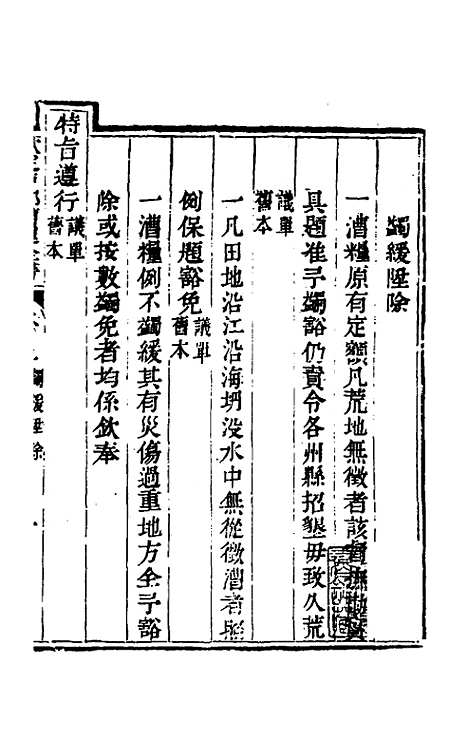 蠲緩陞除
一漕糧原有定額凡荒地無徵者該督撫
具題准予蠲豁仍責令各州縣招墾毋致久荒
議單
舊本
一凡田地沿江沿海坍没水中無從徵漕者照
例保題豁免議單舊本
一漕糧例不蠲緩其有災傷過重地方全予豁
除或按數蠲免者均係欽奉
特旨遵行議單舊本
蠲緩陞除